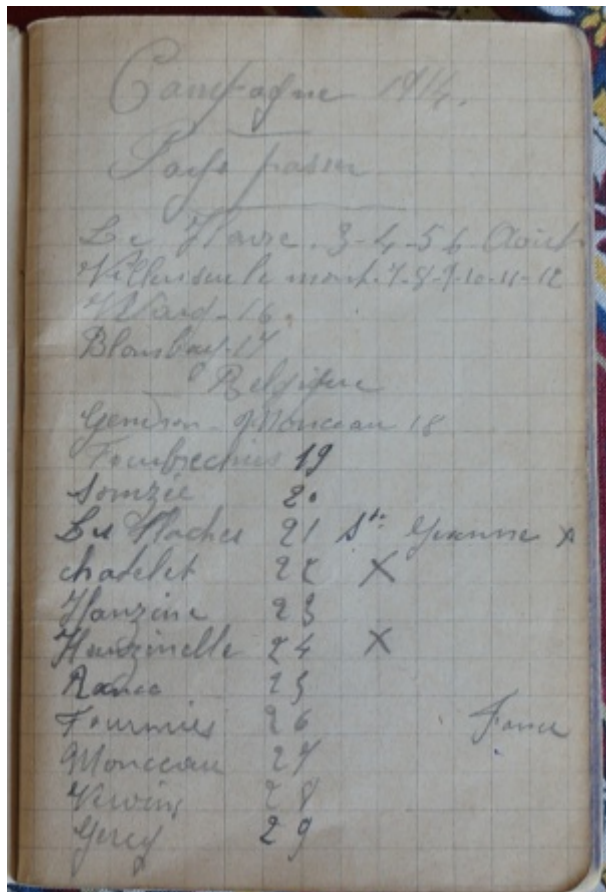 Campagne 1914.
Pays passer
Le Havre. 3-4-5 6 Août
Villers sur le mont. 7-8-9-10-11-12
16.
Blombay-17
Belgique
Gendron. Monceau 18
19
Somzée 20
Les Flaches 21 Ste X
chatelet 22 X
Hanzine 23
Hanzinelle 24 X
Rance 25
Fourmies 26 France
Monceau 27
Vervins 28
Gercy 29